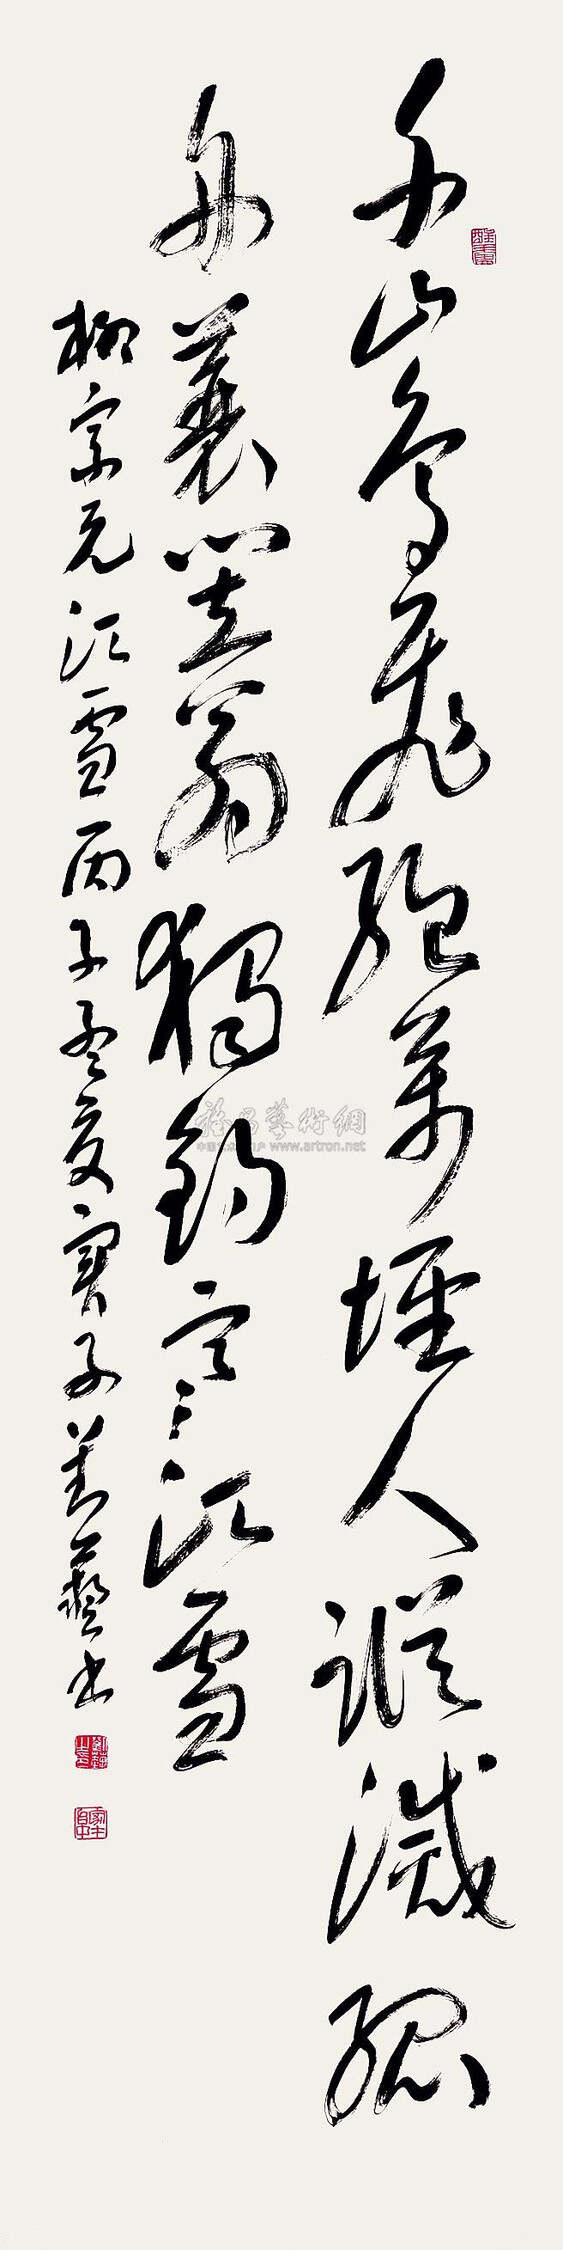 千山鸟飞绝万径人踪灭孤
舟蓑笠翁独钓寒江雪
柳宗元江雪丙子孟夏
书
雅昌藝術網
www.artron.net